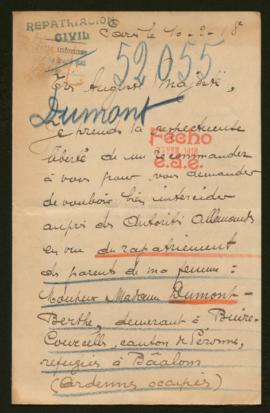 REPATRIACION
CIVIL
le 10-2-18
52055
Très Auguste Majesté,
Dumont
Je prends la respectueuse
Fecho
liberté de me recommander
à vous pour vous demander
e.a.e.
de vouloir bien intercéder
auprès des Autorités Allemandes
en vue du rapatriement
des parents de ma femme :
Monsieur Madame Dumont-
Berthe, demeurant à Buire-
Courcelles, canton de Péronne,
réfugiés à Bâalons
(Ardennes occupées)